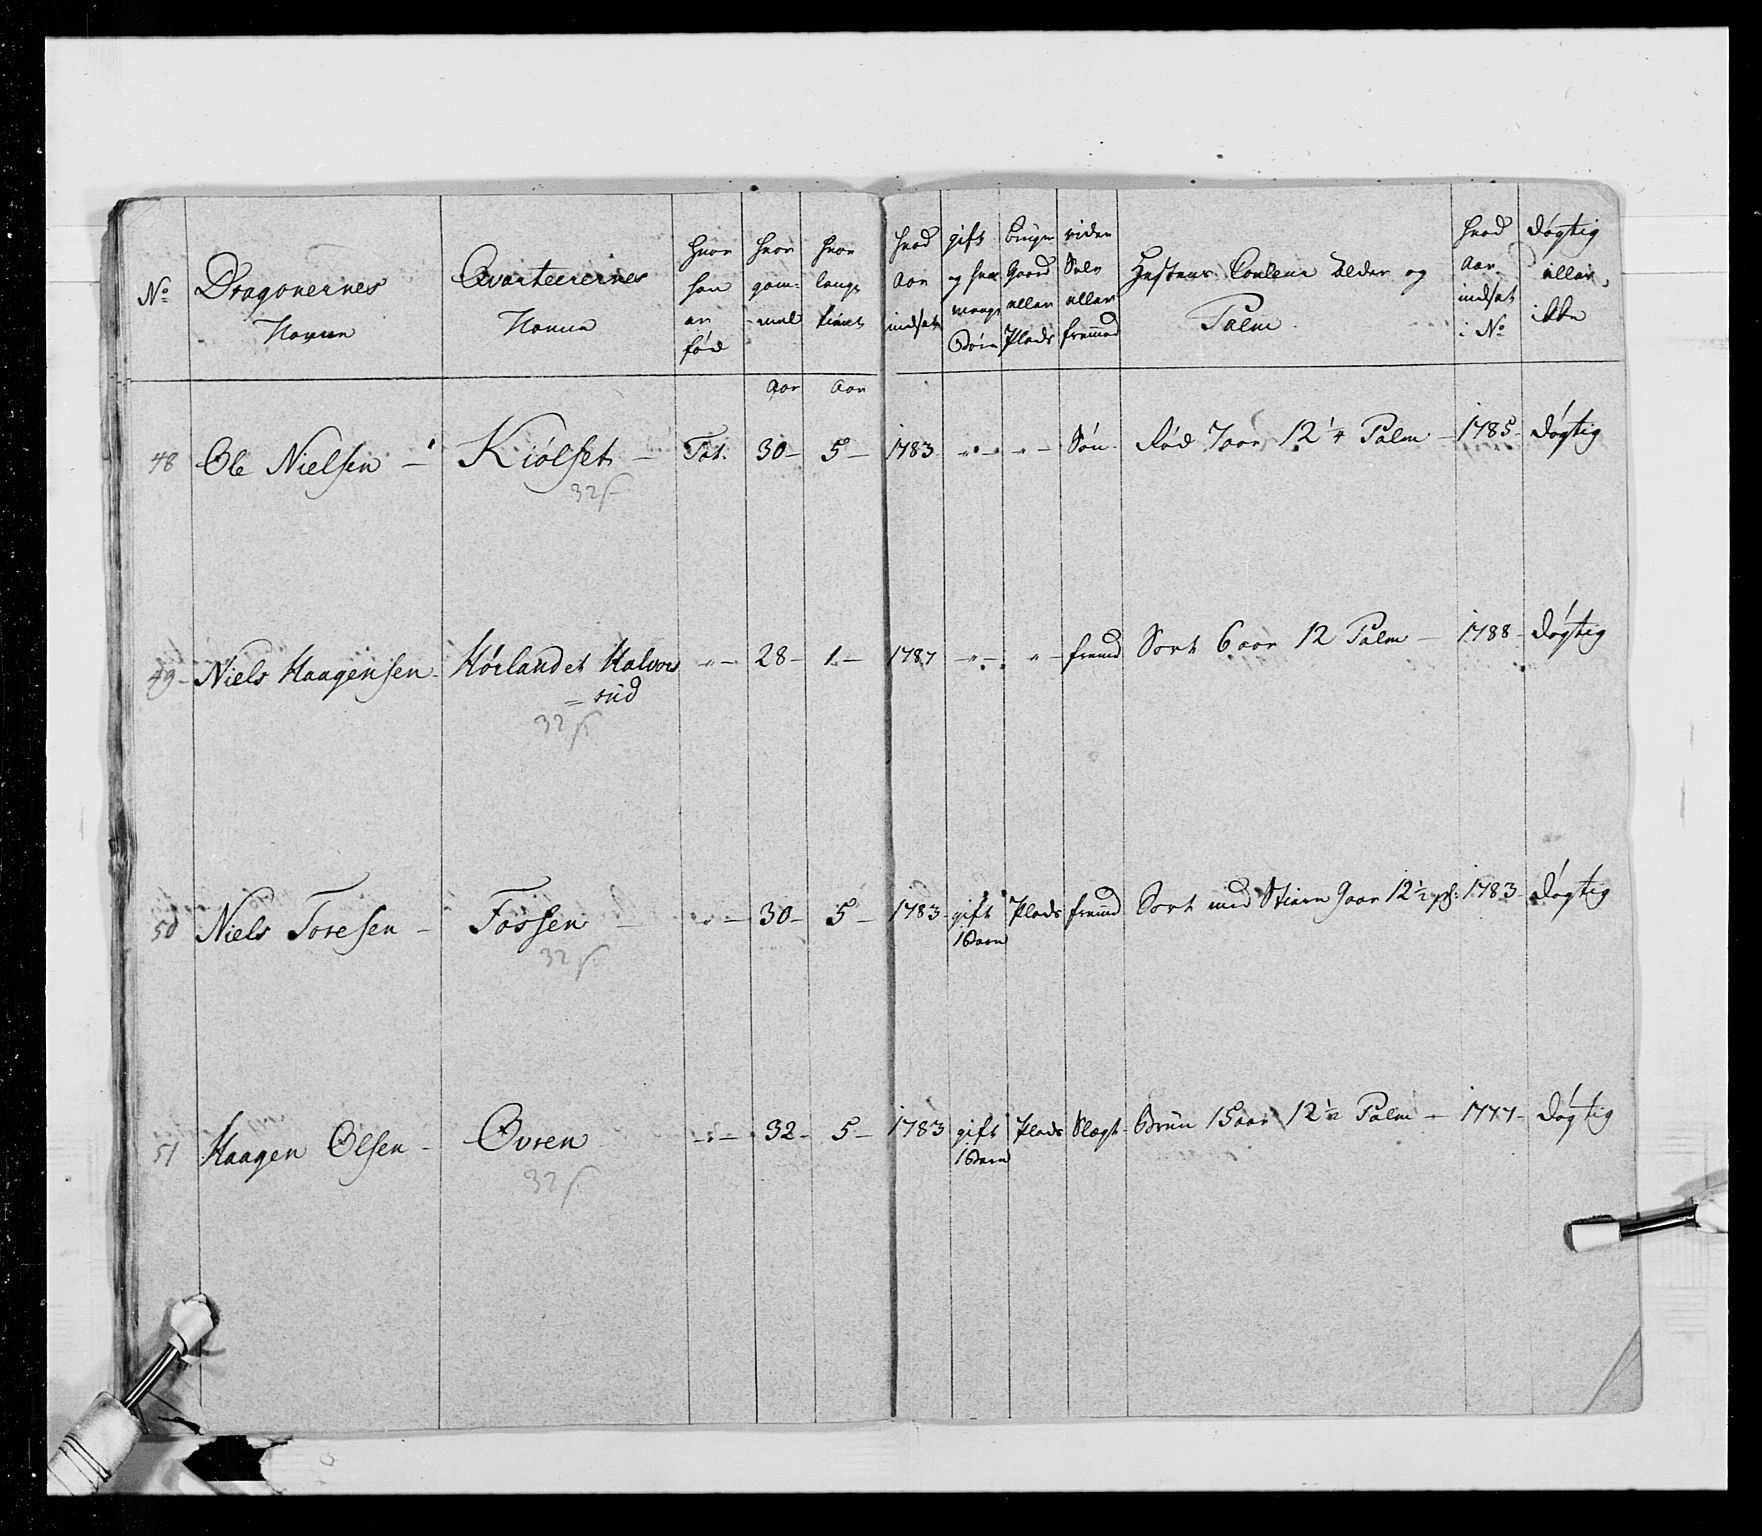 No
Dragonernes
Navne
Qvarteerernes
Navne
hvor
han
er
fød
hvor
gam-
-mel
hvor
længe
tient
hvad
Aar
indsat
gift
og hvor
mange
Børn
bruger
Gaard
eller
Plads
rider
Selv
eller
fremmed
Hestens Couleur Alder og
Palm
hvad
Aar
indsat
i No
døgtig
eller
ikke
Aar
Aar
48 Ole Nielsen - Kiølset - Tot. 30 - 5 - 1783 - " - " - Søn - Rød 7 aar 12 1/4 Palm - 1785 - døgtig
32 s
49 - Niels Haagensen - Hørlandet Halvors - " - 28 - 1 - 1787 - " - " - fremd Sort 6 aar 12 Palm - 1788 - døgtig
= rud
32 s
50 Niels Toresen - Fossen - " - 30 - 5 - 1783 - gift Plads fremd Sort med Stiern 9 aar 12 1/2 p: 1783 - døgtig
1 Barn
32 s
51 Haagen Olsen - Øvren - " - 32 - 5 - 1783 gift Plads Slægt - Brun 15 aar 12 1/2 Palm - 1777 - døgtig
1 Barn
32 s